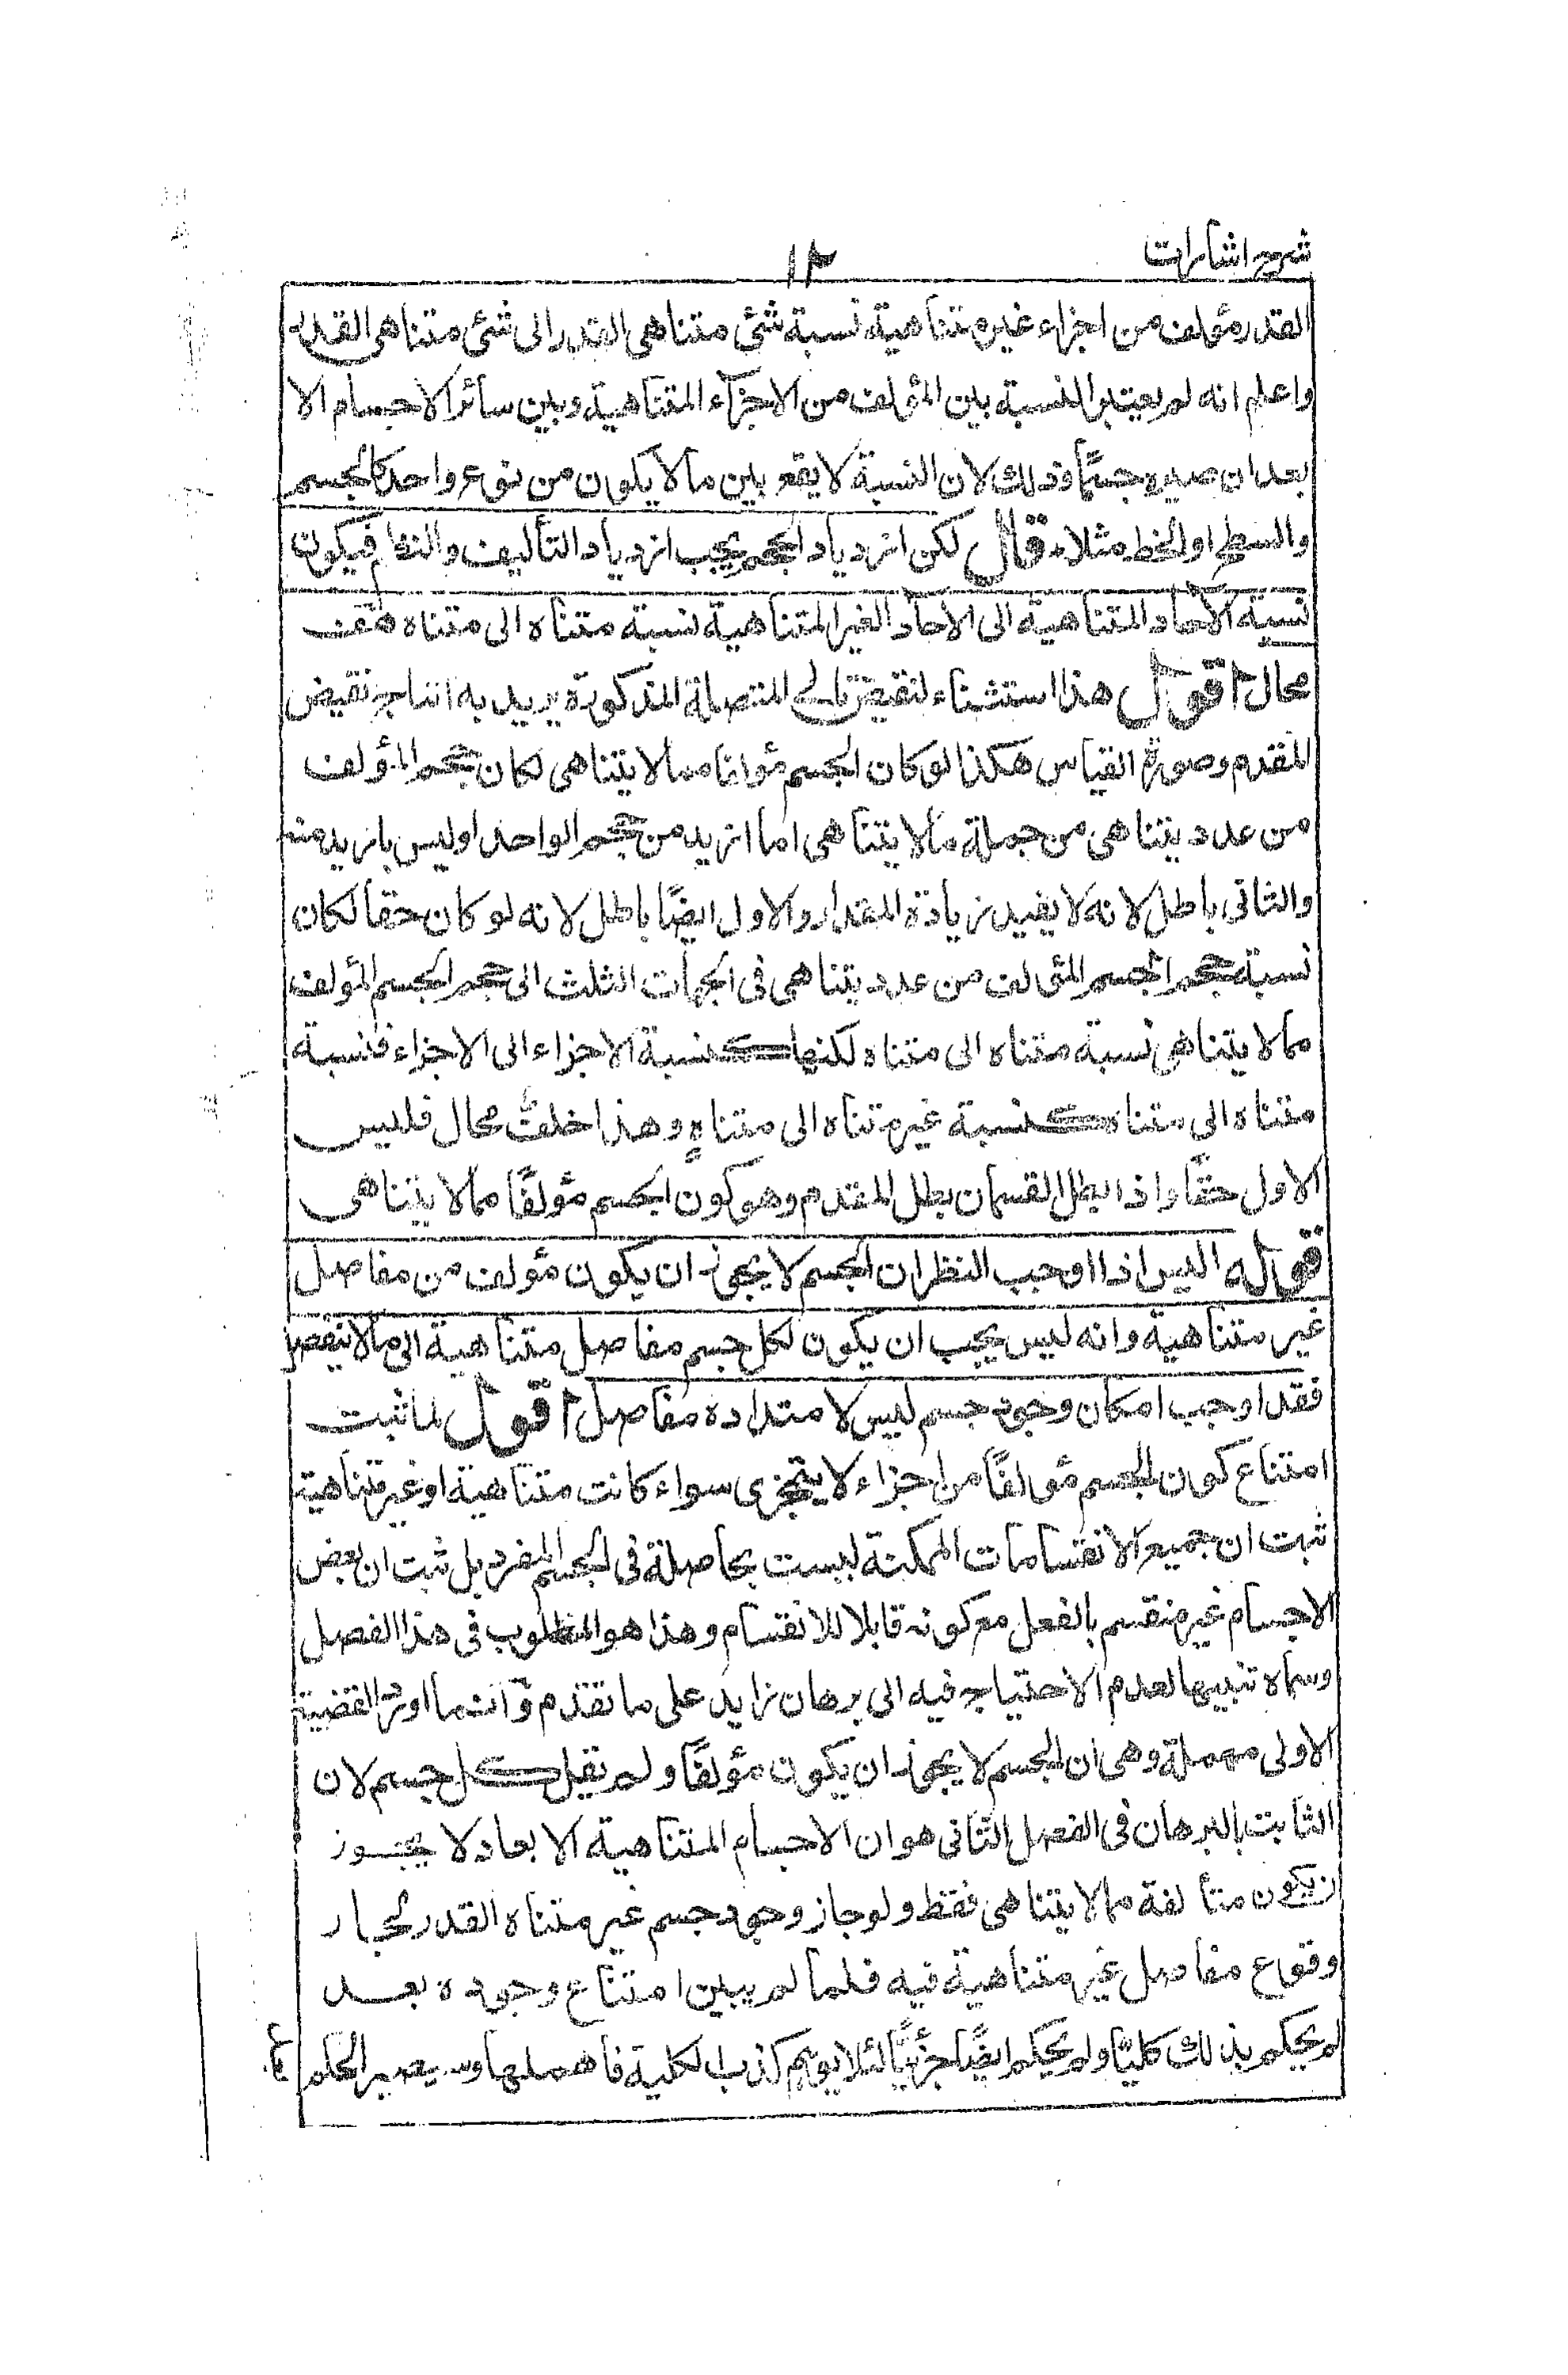 شرح اشارات
١٢
القدر مؤلف من اجزاء غير متناهية نسبة شئ متناهى القدر الى شئ متناهى القدر
واعلم انه لم يعتبر النسبة بين المؤلف من الاجزاء المتناهية وبين سائر الاجسام الا
بعد ان صيره جسمًا وذلك لان النسبة لا يقع بين ما لا يكون من نوع واحد كالجسم
والسطح او الخط مثلا قال لكن ازدياد الحجم بحسب ازدياد التأليف والنظم فيكون
نسبة الآحاد المتناهية الى الآحاد الغير المتناهية نسبة متناه الى متناه هف
محال اقول هذا استثناء لنقيض تالى المتصلة المذكورة يريد به انتاج نقيض
المقدم وصورة القياس هكذا لو كان الجسم مؤلفا مما لا يتناهى لكان حجم المؤلف
من عدد يتناهى من جملة ما لا يتناهى اما ازيد من حجم الواحد او ليس بازيد منه
والثانى باطل لانه لا يفيد زيادة المقدار والاول ايضًا باطل لانه لو كان حقا لكان
نسبة حجم الجسم المؤلف من عدد يتناهى فى الجهات الثلث الى حجم الجسم المؤلف
مما لا يتناهى نسبة متناه الى متناه لكنها كنسبة الاجزاء الى الاجزاء فنسبة
متناه الى متناه كنسبة غير متناه الى متناهٍ وهذا خلف محال فليس
الاول حقًا واذا بطل القسمان بطل المقدم وهو كون الجسم مؤلفًا مما لا يتناهى
قوله اليس اذا اوجب النظر ان الجسم لا يجوز ان يكون مؤلف من مفاصل
غير متناهية وانه ليس يجب ان يكون لكل جسم مفاصل متناهية الى ما لا ينفصل
فقد اوجب امكان وجود جسم ليس لامتداده مفاصل اقول لما ثبت
امتناع كون الجسم مؤلفًا من اجزاء لا يتجزى سواء كانت متناهية او غير متناهية
ثبت ان جميع الانقسامات الممكنة ليست بحاصلة فى الجسم المفرد بل ثبت ان بعض
الاجسام غير منقسم بالفعل مع كونه قابلا للانقسام وهذا هو المطلوب فى هذا الفصل
وسماه تنبيها لعدم الاحتياج فيه الى برهان زايد على ما تقدم وانما اورد القضية
الاولى مهملة وهى ان الجسم لا يجوز ان يكون مؤلفًا ولم يقل كل جسم لان
الثابت بالبرهان فى الفصل الثانى هو ان الاجسام المتناهية الابعاد لا يجوز
ان يكون متألفة مما لا يتناهى فقط ولو جاز وجود جسم غير متناه القدر لجاز
وقوع مفاصل غير متناهية فيه فلما لم يبين امتناع وجوده بعد
لم يحكم بذلك كليًا ولم يحكم ايضًا جزئيًا لئلا يوهم كذب الكلية فاهملها وسيصير الحكم